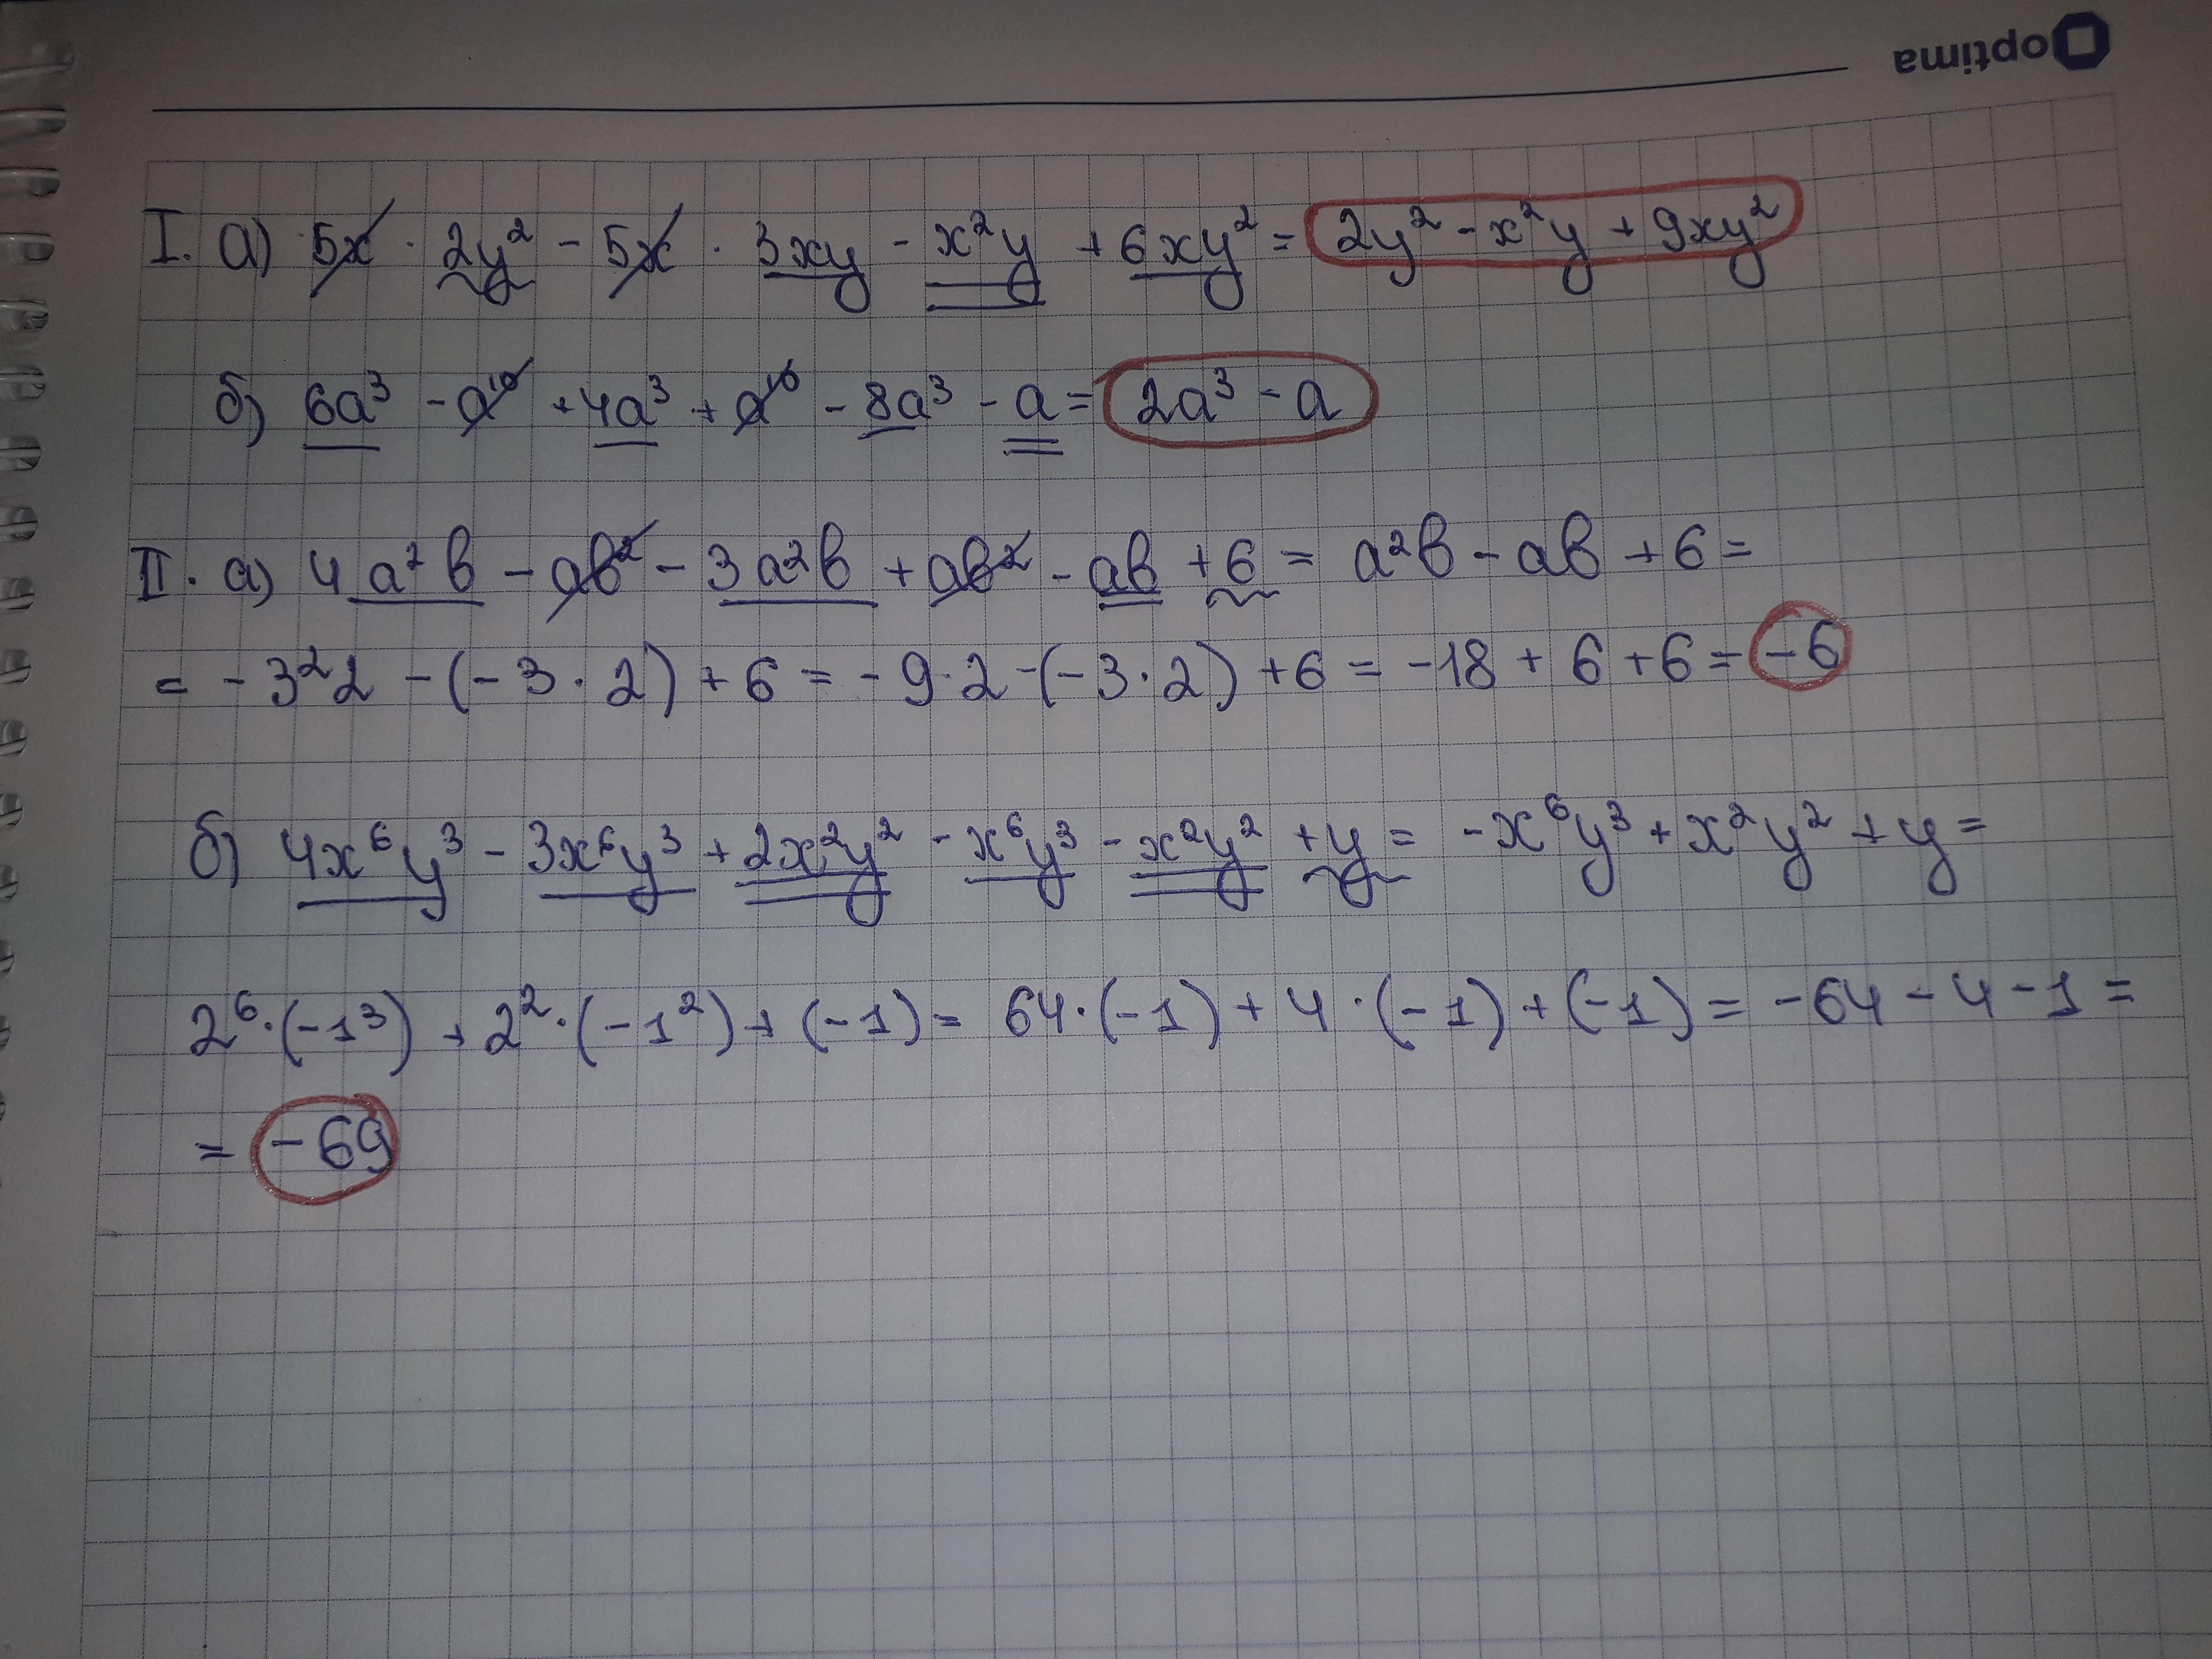 optima
I. а) 5x · 2y² - 5x · 3xy - x²y + 6xy² = 2y² - x²y + 9xy²
б) 6a³ - a¹⁰ + 4a³ + a¹⁰ - 8a³ - a = 2a³ - a
II. а) 4a²b - ab² - 3a²b + ab² - ab + 6 = a²b - ab + 6 =
= -3²2 - (-3·2) + 6 = -9·2 - (-3·2) + 6 = -18 + 6 + 6 = -6
б) 4x⁶y³ - 3x⁶y³ + 2x²y² - x⁶y³ - x²y² + y = -x⁶y³ + x²y² + y =
2⁶·(-1³) + 2²·(-1²) + (-1) = 64·(-1) + 4·(-1) + (-1) = -64 - 4 - 1 =
= -69